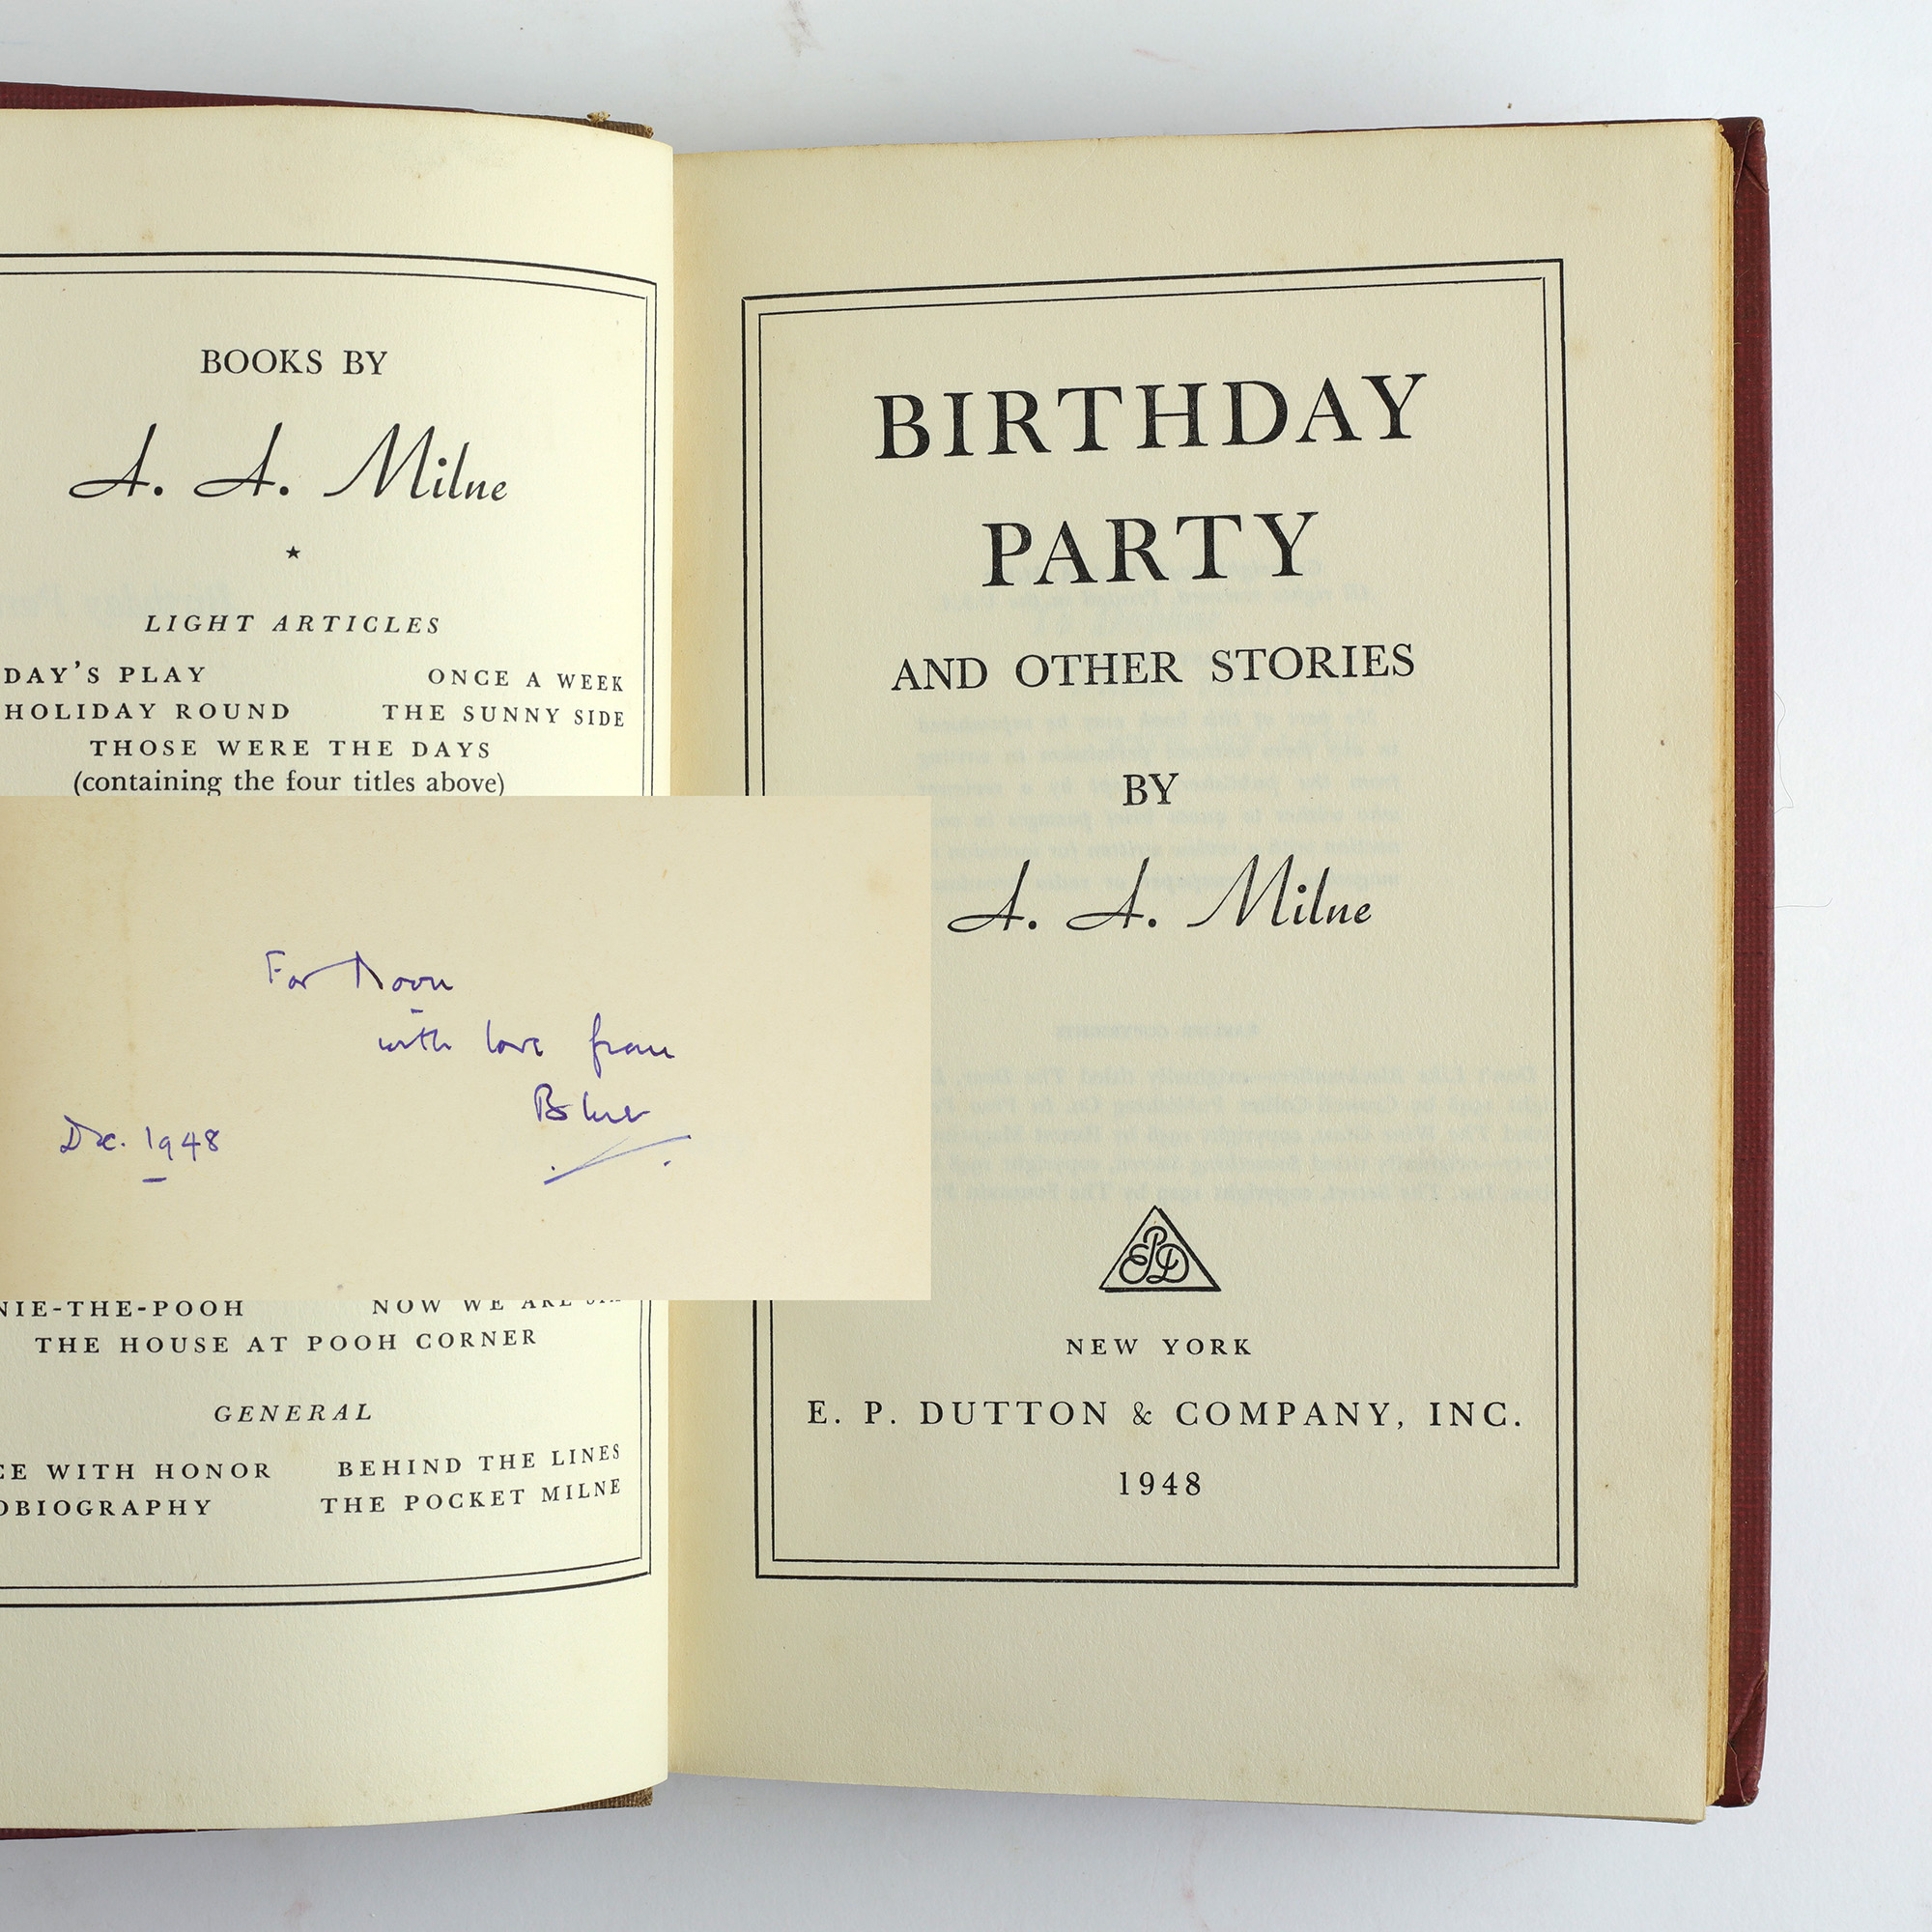 BOOKS BY
A. A. Milne
LIGHT ARTICLES
DAY'S PLAY ONCE A WEEK
HOLIDAY ROUND THE SUNNY SIDE
THOSE WERE THE DAYS
(containing the four titles above)
For Moon
with love from
Blue
Dec. 1948
NIE-THE-POOH NOW WE ARE
THE HOUSE AT POOH CORNER
GENERAL
CE WITH HONOR BEHIND THE LINES
OBIOGRAPHY THE POCKET MILNE
BIRTHDAY
PARTY
AND OTHER STORIES
BY
A. A. Milne
EPD
NEW YORK
E. P. DUTTON & COMPANY, INC.
1948